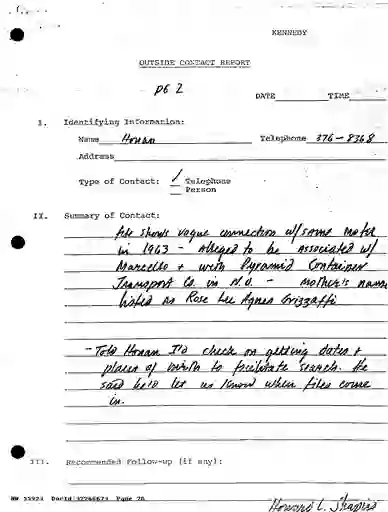 KENNEDY
OUTSIDE CONTACT REPORT
pg 2
DATE TIME
I. Identifying Information:
Name Honan Telephone 376-8368
Address
Type of Contact: / Telephone
Person
II. Summary of Contact:
file shows vague connection w/ same
in 1963 - alleged to be associated w/
Marcello + with Pyramid Container
Transport Co. in N.O. - mother's name
listed as Rose Lee Agnes Grizzaffi
- Told Honan I'd check on getting dates +
places of birth to facilitate search. He
said he'd let us know when files come
in.
III. Recommended Follow-up (if any):
Page 20
Howard L. Shapiro